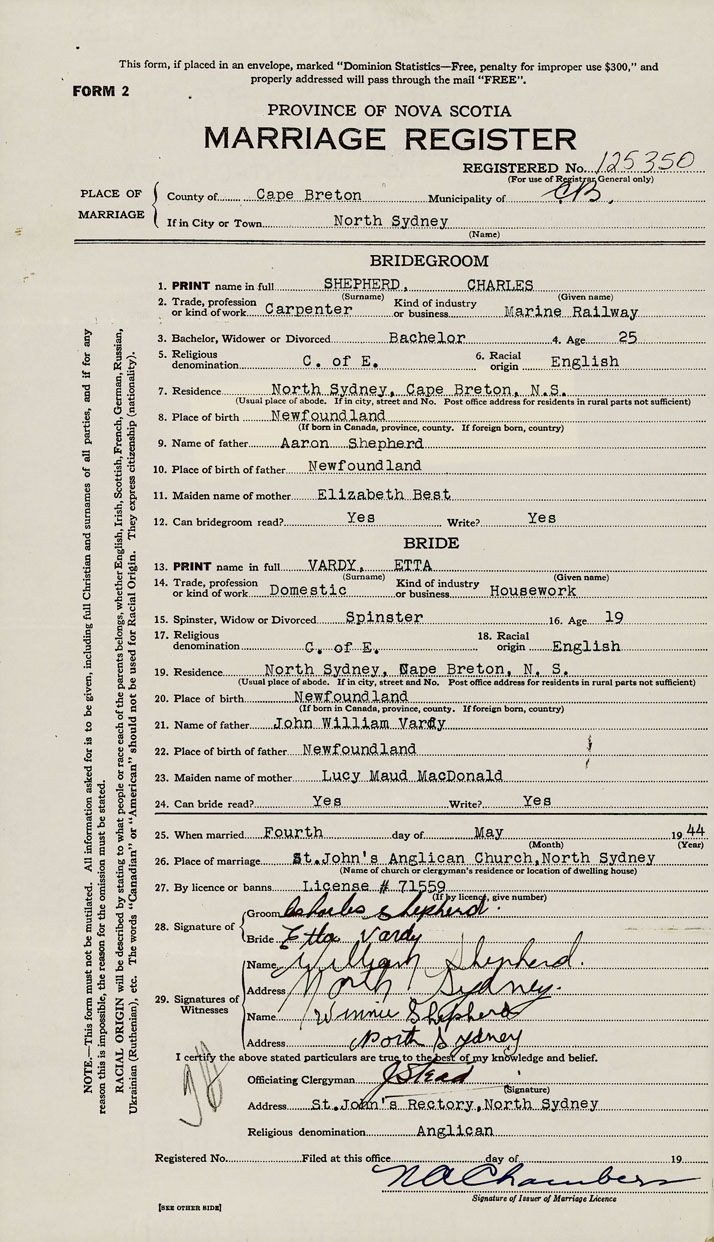 This form, if placed in an envelope, marked “Dominion Statistics—Free, penalty for improper use $300,” and
properly addressed will pass through the mail “FREE”.
FORM 2
PROVINCE OF NOVA SCOTIA
MARRIAGE REGISTER
REGISTERED No. 125350
(For use of Registrar General only)
PLACE OF MARRIAGE
County of Cape Breton Municipality of C.B.
If in City or Town North Sydney
(Name)
BRIDEGROOM
1. PRINT name in full SHEPHERD, CHARLES
(Surname) (Given name)
2. Trade, profession or kind of work Carpenter Kind of industry or business Marine Railway
3. Bachelor, Widower or Divorced Bachelor 4. Age 25
5. Religious denomination C. of E. 6. Racial origin English
7. Residence North Sydney, Cape Breton, N.S.
(Usual place of abode. If in city, street and No. Post office address for residents in rural parts not sufficient)
8. Place of birth Newfoundland
(If born in Canada, province, county. If foreign born, country)
9. Name of father Aaron Shepherd
10. Place of birth of father Newfoundland
11. Maiden name of mother Elizabeth Best
12. Can bridegroom read? Yes Write? Yes
BRIDE
13. PRINT name in full VARDY, ETTA
(Surname) (Given name)
14. Trade, profession or kind of work Domestic Kind of industry or business Housework
15. Spinster, Widow or Divorced Spinster 16. Age 19
17. Religious denomination C. of E. 18. Racial origin English
19. Residence North Sydney, Cape Breton, N. S.
(Usual place of abode. If in city, street and No. Post office address for residents in rural parts not sufficient)
20. Place of birth Newfoundland
(If born in Canada, province, county. If foreign born, country)
21. Name of father John William Vardy
22. Place of birth of father Newfoundland
23. Maiden name of mother Lucy Maud MacDonald
24. Can bride read? Yes Write? Yes
25. When married Fourth day of May 1944
(Month) (Year)
26. Place of marriage St.John's Anglican Church,North Sydney
(Name of church or clergyman's residence or location of dwelling house)
27. By licence or banns License # 71559
(If by licence, give number)
28. Signature of
Groom Charles Shepherd.
Bride Etta Vardy
29. Signatures of Witnesses
Name William Shepherd.
Address North Sydney.
Name Winnie Shepherd
Address North Sydney
I certify the above stated particulars are true to the best of my knowledge and belief.
Officiating Clergyman J Stead
(Signature)
Address St.John's Rectory,North Sydney
Religious denomination Anglican
Registered No. Filed at this office day of 19
N A Chambers
Signature of Issuer of Marriage Licence
[SEE OTHER SIDE]
NOTE.—This form must not be mutilated. All information asked for is to be given, including full Christian and surnames of all parties, and if for any
reason this is impossible, the reason for the omission must be stated.
RACIAL ORIGIN will be described by stating to what people or race each of the parents belongs, whether English, Irish, Scottish, French, German, Russian,
Ukrainian (Ruthenian), etc. The words “Canadian” or “American” should not be used for Racial Origin. They express citizenship (nationality).